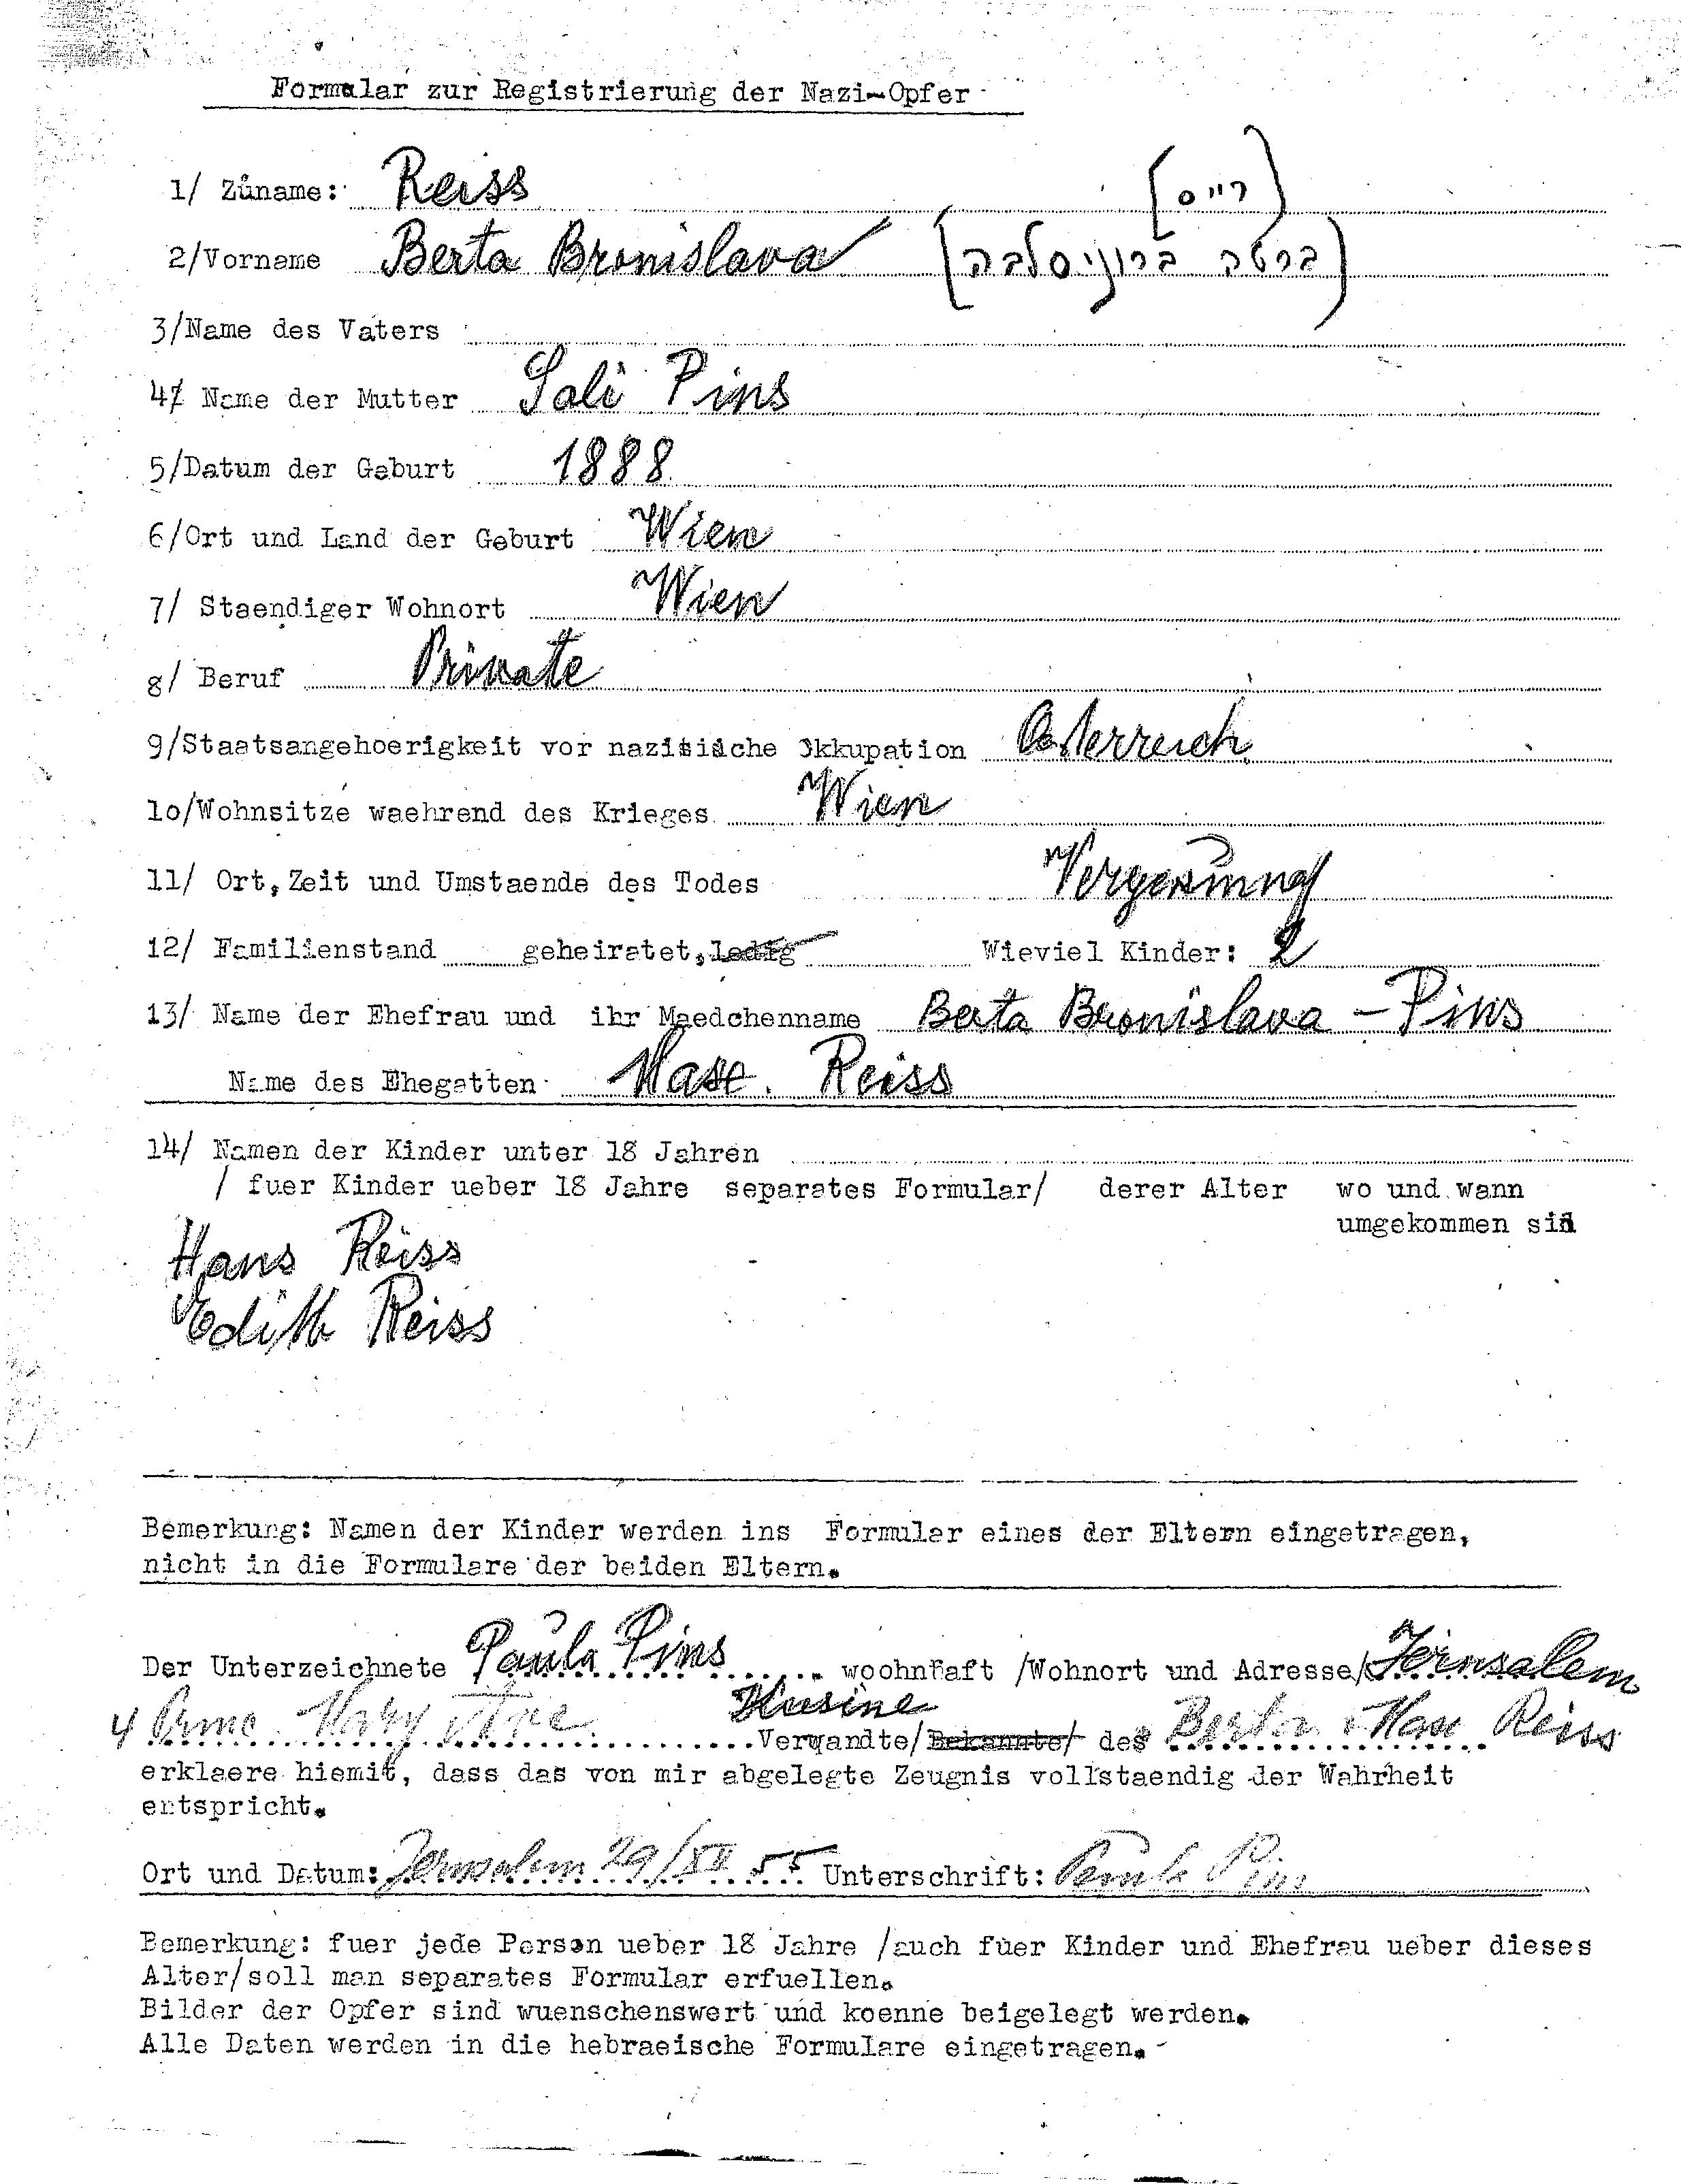 Formular zur Registrierung der Nazi-Opfer
1/ Zuname: Reiss [רייס]
2/Vorname Berta Bronislava [ברטה ברוניסלבה]
3/Name des Vaters
4/ Name der Mutter Sali Pins
5/Datum der Geburt 1888
6/Ort und Land der Geburt Wien
7/ Staendiger Wohnort Wien
8/ Beruf Private
9/Staatsangehoerigkeit vor nazisische Okkupation Oesterreich
10/Wohnsitze waehrend des Krieges Wien
11/ Ort, Zeit und Umstaende des Todes Vergasung
12/ Familienstand geheiratet, ledig Wieviel Kinder: 2
13/ Name der Ehefrau und ihr Maedchenname Berta Bronislava - Pins
Name des Ehegatten Reiss
14/ Namen der Kinder unter 18 Jahren
/ fuer Kinder ueber 18 Jahre separates Formular/ derer Alter wo und wann
umgekommen sin
Hans Reiss
Edith Reiss
Bemerkung: Namen der Kinder werden ins Formular eines der Eltern eingetragen,
nicht in die Formulare der beiden Eltern.
Der Unterzeichnete Paula Pins woohnhaft /Wohnort und Adresse/ Jerusalem
4 Kusine
Verwandte/Bekannte/ des Berta Reiss
erklaere hiemit, dass das von mir abgelegte Zeugnis vollstaendig der Wahrheit
entspricht.
Ort und Datum: Jerusalem 29/XII 55 Unterschrift: Paula Pins
Bemerkung: fuer jede Person ueber 18 Jahre /auch fuer Kinder und Ehefrau ueber dieses
Alter/soll man separates Formular erfuellen.
Bilder der Opfer sind wuenschenswert und koenne beigelegt werden.
Alle Daten werden in die hebraeische Formulare eingetragen.-